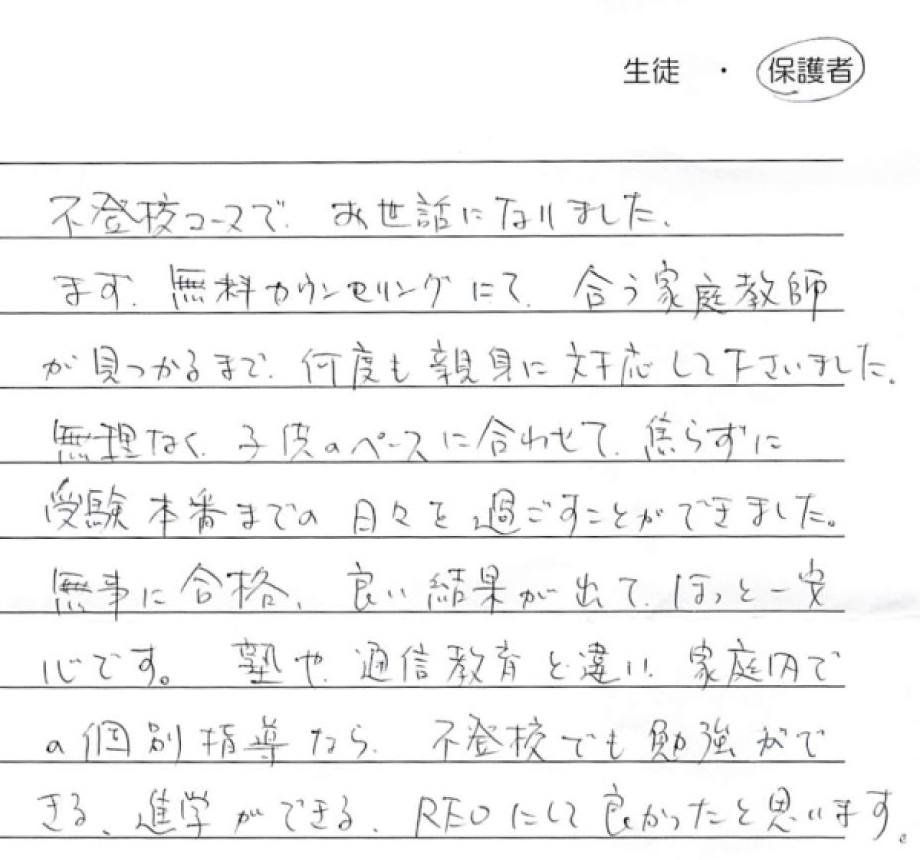 生徒 ・ 保護者
不登校コースで、お世話になりました、
まず、無料カウンセリングにて、合う家庭教師
が見つかるまで、何度も親身に対応して下さいました。
無理なく、子供のペースに合わせて、焦らずに
受験本番までの日々を過ごすことができました。
無事に合格、良い結果が出て、ほっと一安
心です。塾や、通信教育と違い、家庭内で
の個別指導なら、不登校でも勉強がで
きる、進学ができる、REOにして良かったと思います。